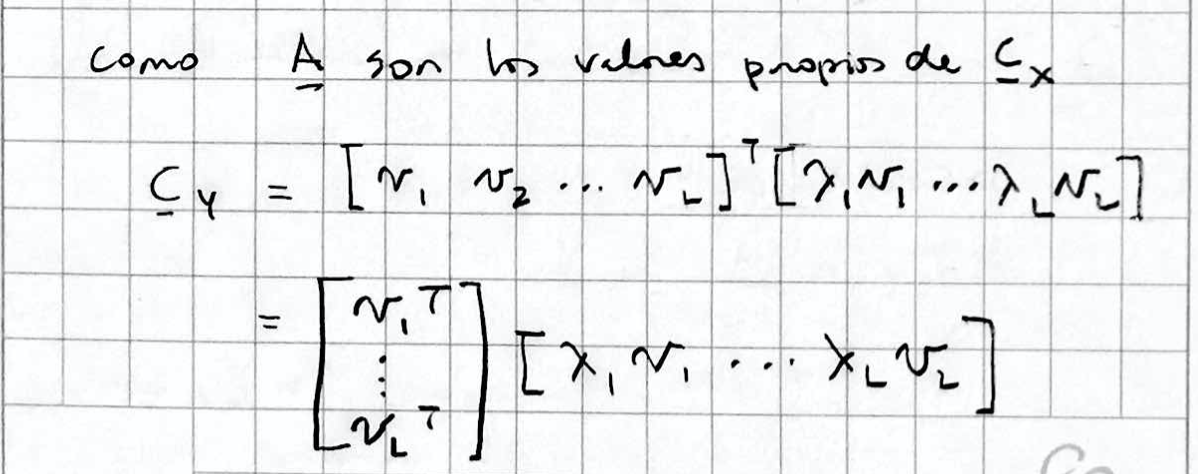 como A son los valores propios de C_x
C_y = [v_1 v_2 ... v_L]^T [λ_1 v_1 ... λ_L v_L]
= [v_1^T ⋮ v_L^T] [λ_1 v_1 ... λ_L v_L]